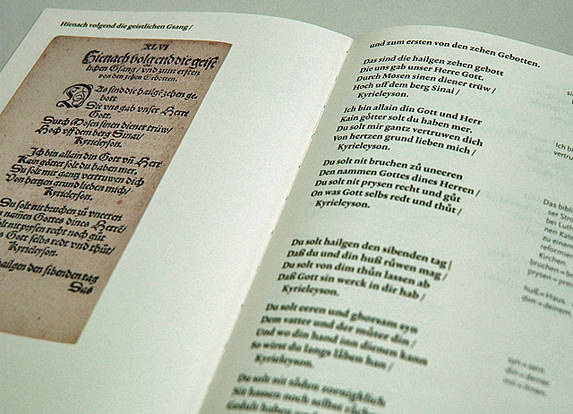 Hienach volgend die geistlichen Gsang /
XLVI
Hienach volgend die geist
lichen Gsang / vnd zum ersten
von den zehen Gebotten.
Das sind die hailgē zehen ge
bott
Die vns gab vnser Herre
Gott.
Durch Mosen sinen diener trüw /
Hoch vff dem berg Sinai /
Kyrieleyson.
Ich bin allain din Gott vñ Herr
Kain götter solt du haben mer.
Du solt mir gantz vertruwen dich
Von hertzen grund lieben mich /
Kyrieleyson.
Du solt nit bruchen zu vneeren
namen Gottes dines Herrē /
solt nit prysen recht noch gůt
Gott selbs redt vnd thůt /
Kyrieleyson.
hailgen den sibenden tag
Das
und zum ersten von den zehen Gebotten.
Das sind die hailgen zehen gebott
Die uns gab unser Herre Gott.
Durch Mosen sinen diener trüw /
Hoch uff dem berg Sinai /
Kyrieleyson.
Ich bin allain din Gott und Herr
Kain götter solt du haben mer.
Du solt mir gantz vertruwen dich
Von hertzen grund lieben mich /
Kyrieleyson.
Du solt nit bruchen zů uneeren
Den nammen Gottes dines Herren /
Du solt nit prysen recht und gůt
On was Gott selbs redt und thůt /
Kyrieleyson.
Du solt hailgen den sibenden tag /
Daß du und din huß růwen mag /
Du solt von dim thůn lassen ab
Daß Gott sin werck in dir hab /
Kyrieleyson.
Du solt eeren und ghorsam syn
Dem vatter und der můter din /
Und wo din hand inn dienen kann
So wirst du langs läben han /
Kyrieleyson.
Du solt nit töden zornigklich
Nit hassen noch selbst räch
Ich bin
Das bibl
ser Stro
bei Luth
nen Kate
zu einem
reformier
Kirchen
bruchen = br
prysen = prei
huß = Haus.
dim = deinem.
syn = sein.
din = deine
inn = ihnen.